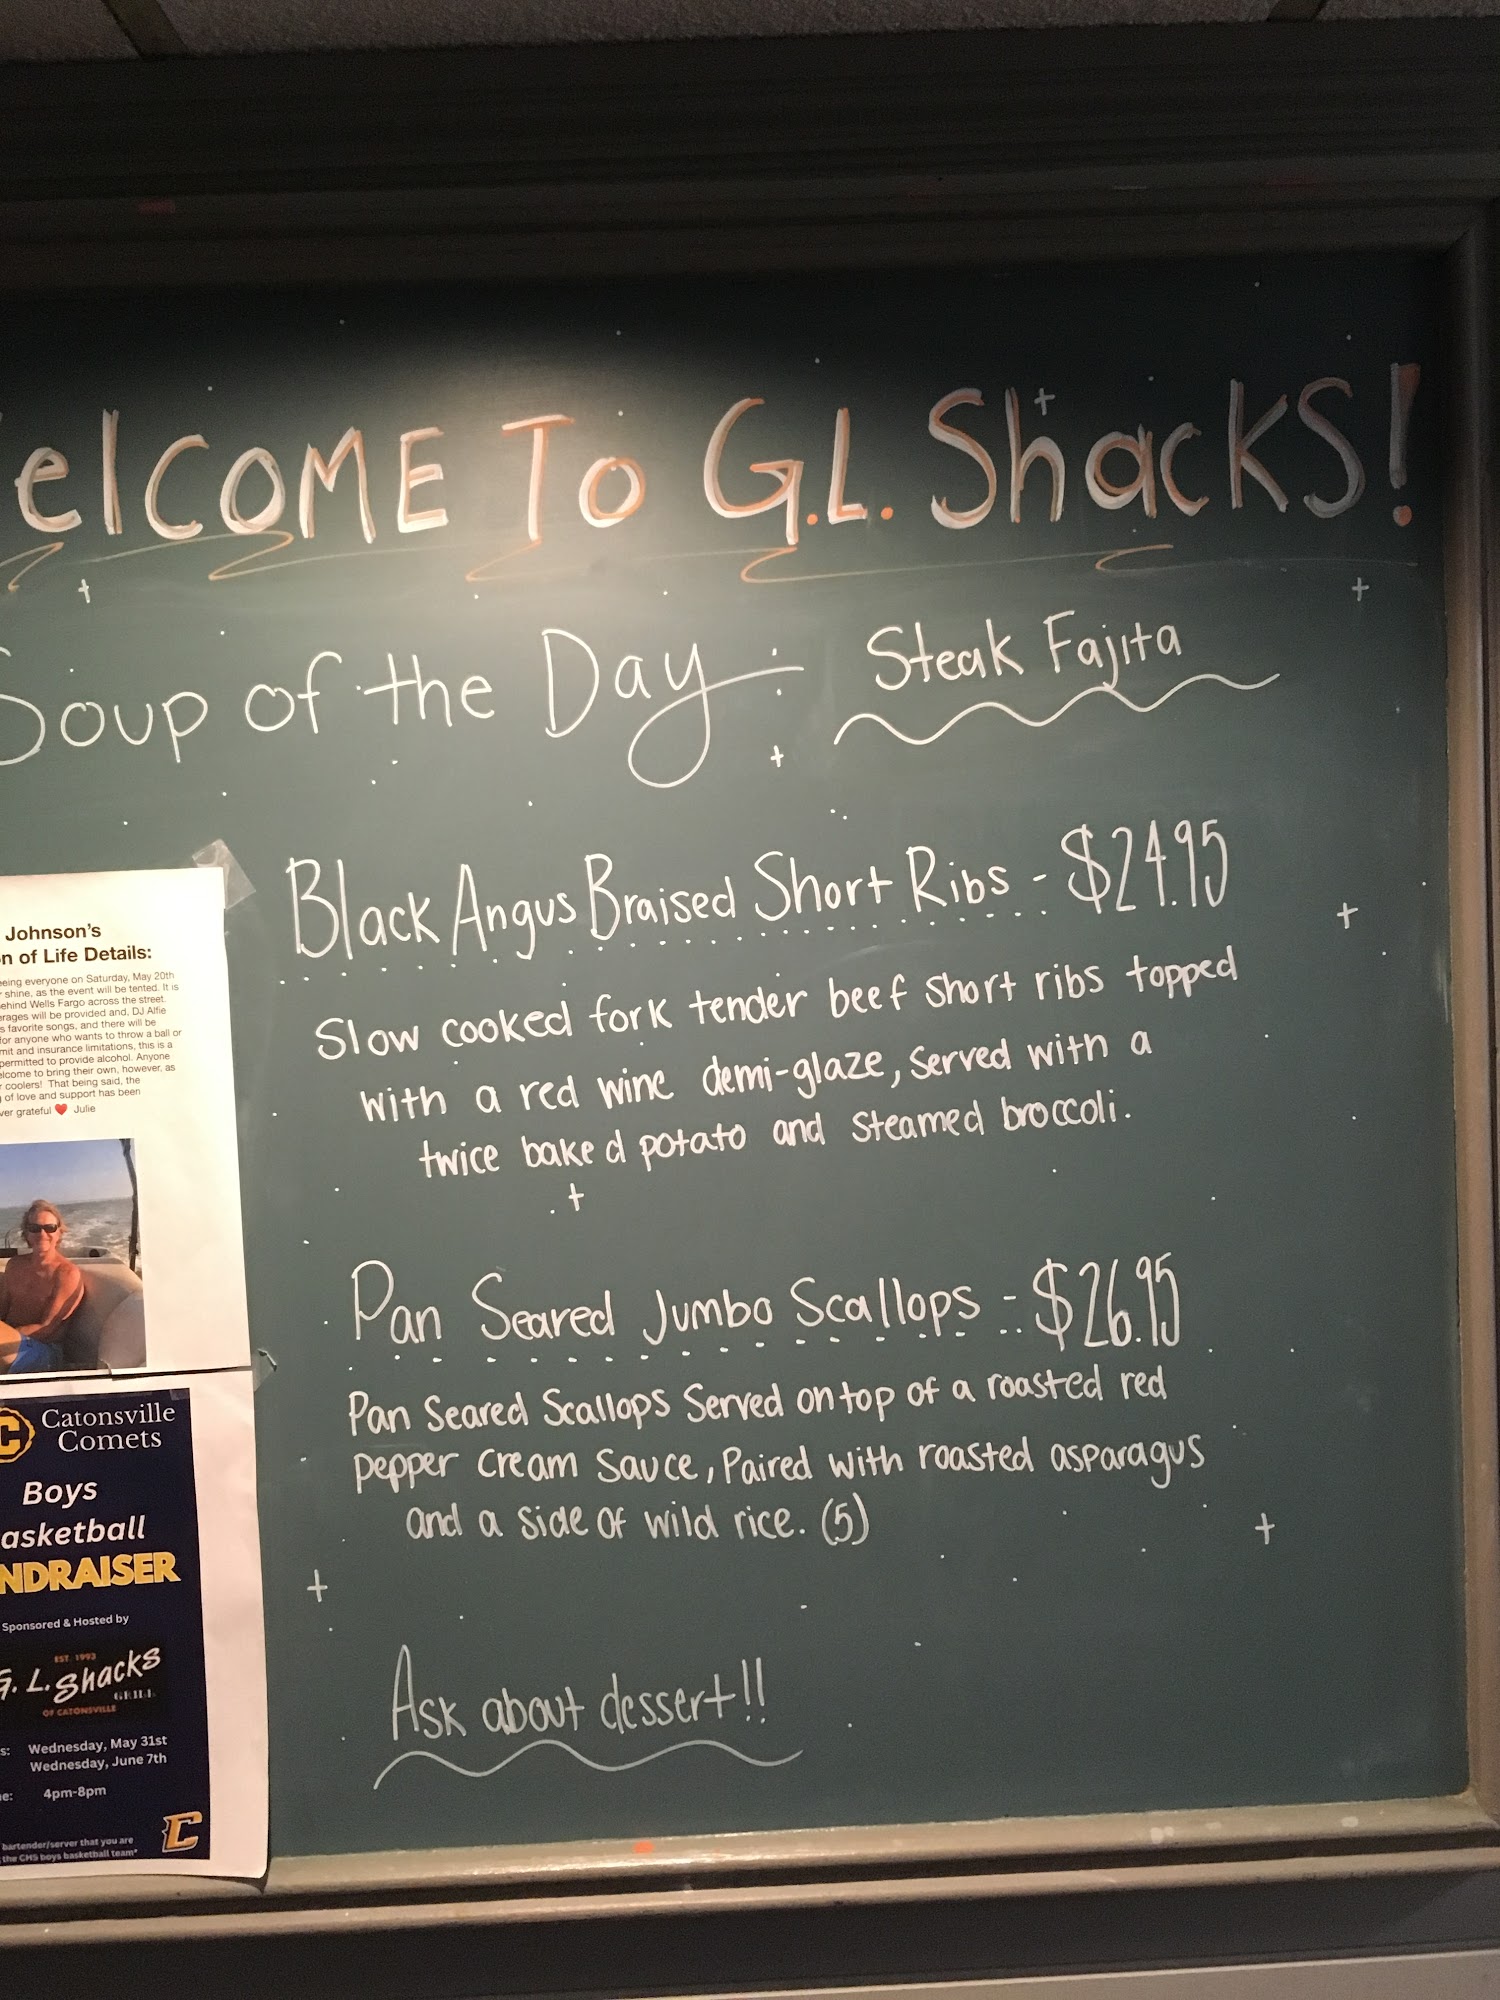 elcOME To G.L. ShacKS!
Soup of the Day: Steak Fajita
Black Angus Braised Short Ribs - $24.95
Slow cooked fork tender beef short ribs topped
with a red wine demi-glaze, served with a
twice baked potato and steamed broccoli.
Pan Seared Jumbo Scallops - $26.95
Pan Seared Scallops Served on top of a roasted red
pepper cream sauce, Paired with roasted asparagus
and a side of wild rice. (5)
Ask about dessert!!
Johnson's
n of Life Details:
eing everyone on Saturday, May 20th
shine, as the event will be tented. It is
ehind Wells Fargo across the street.
erages will be provided and, DJ Alfie
s favorite songs, and there will be
for anyone who wants to throw a ball or
mit and insurance limitations, this is a
permitted to provide alcohol. Anyone
elcome to bring their own, however, as
r coolers! That being said, the
g of love and support has been
ver grateful ❤️ Julie
C Catonsville
Comets
Boys
asketball
NDRAISER
Sponsored & Hosted by
EST. 1993
G. L. Shacks
GRILL
OF CATONSVILLE
s: Wednesday, May 31st
Wednesday, June 7th
e: 4pm-8pm
bartender/server that you are
the CHS boys basketball team*
C